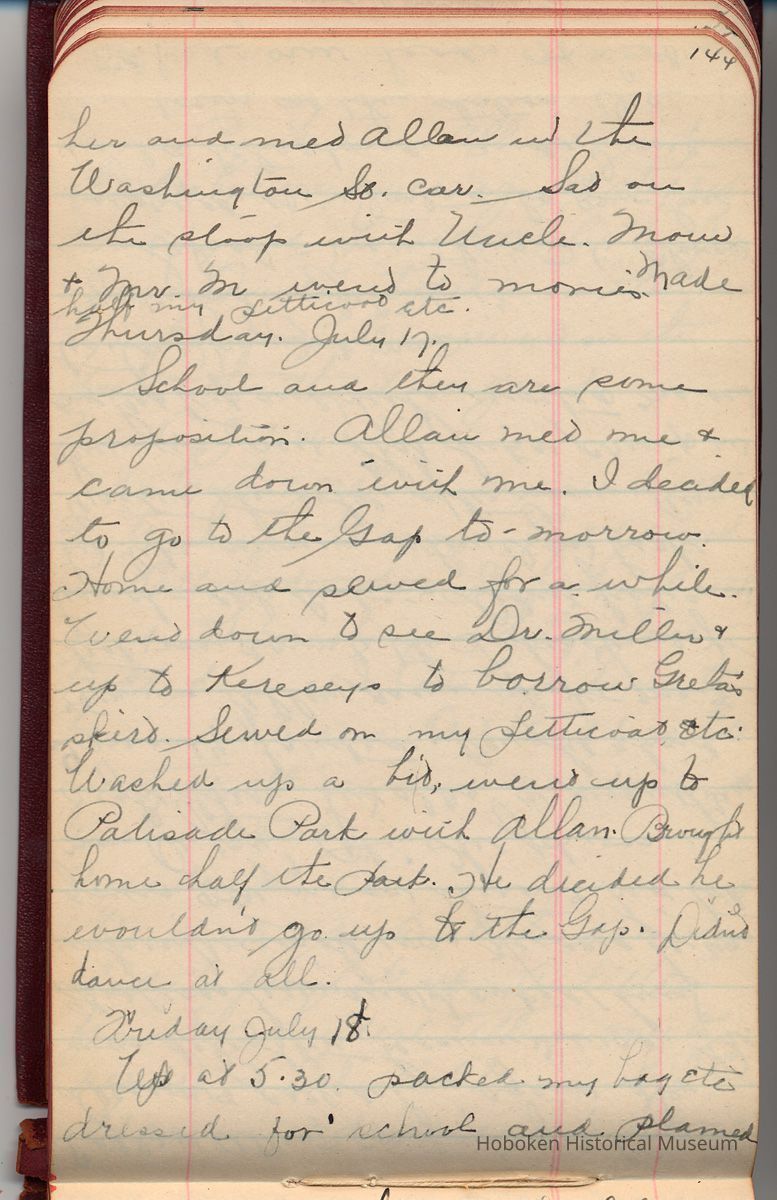 144
her and met Allan in the
Washington St. car. Sat on
the stoop with Uncle. Mom
& Mr. M went to movies. Made
half my petticoat etc.
Thursday. July 17.
School and they are some
proposition. Allan met me &
came down with me. I decided
to go to the Gap to-morrow.
Home and sewed for a while.
Went down to see Dr. Miller &
up to Kereseys to borrow Greta's
skirt. Sewed on my petticoat, etc.
Washed up a bit, went up to
Palisade Park with Allan. Brought
home half the park. He decided he
wouldn't go up to the Gap. Didn't
dance at all.
Friday July 18.
Up at 5.30. packed my bag etc
dressed for school and planned
Hoboken Historical Museum